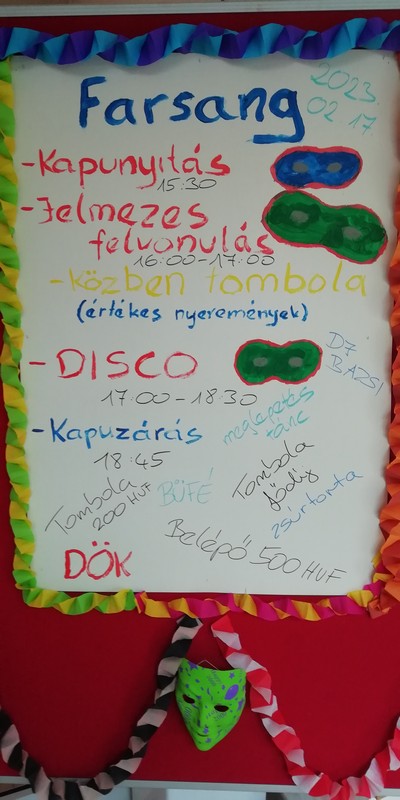 Farsang
2023.
02 17.
-Kapunyitás
15:30
-Jelmezes
felvonulás
16:00-17:00
-közben tombola
(értékes nyeremények)
-DISCO
D7
BAZSI
17:00-18:30
meglepetés
tánc
-Kapuzárás
18:45
Tombola
200 HUF
BÜFÉ
Tombola
fődíj
zsúrtorta
Belépő 500 HUF
DÖK